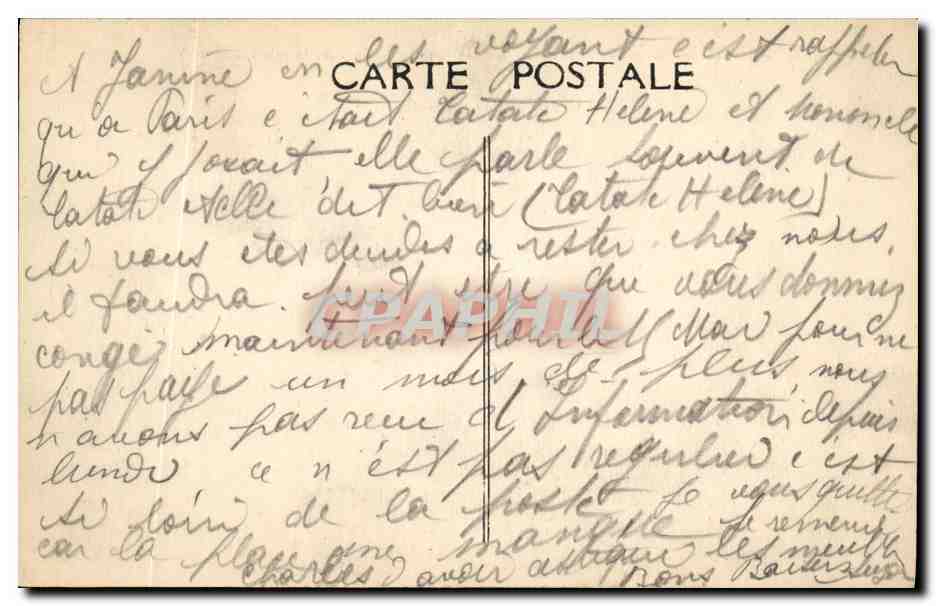 A Janine en les voyant c'est rappeler
CARTE POSTALE
qu a Paris c etait tatate Helene et
qui y posait elle parle souvent de
tatate elle dit bien (Tatate Helene)
Si vous etes decides a rester chez nous,
il faudra peut etre que vous donniez
conge maintenant pour le Mai pour ne
pas paye un mois de plus nous
n avons pas reçu d'Information depuis
lundi ce n'est pas regulier c'est
si loin de la poste je vous quitte
car la place me manque je remercie
Charles d avoir les meubles
Bons Baisers
CPAPHIL